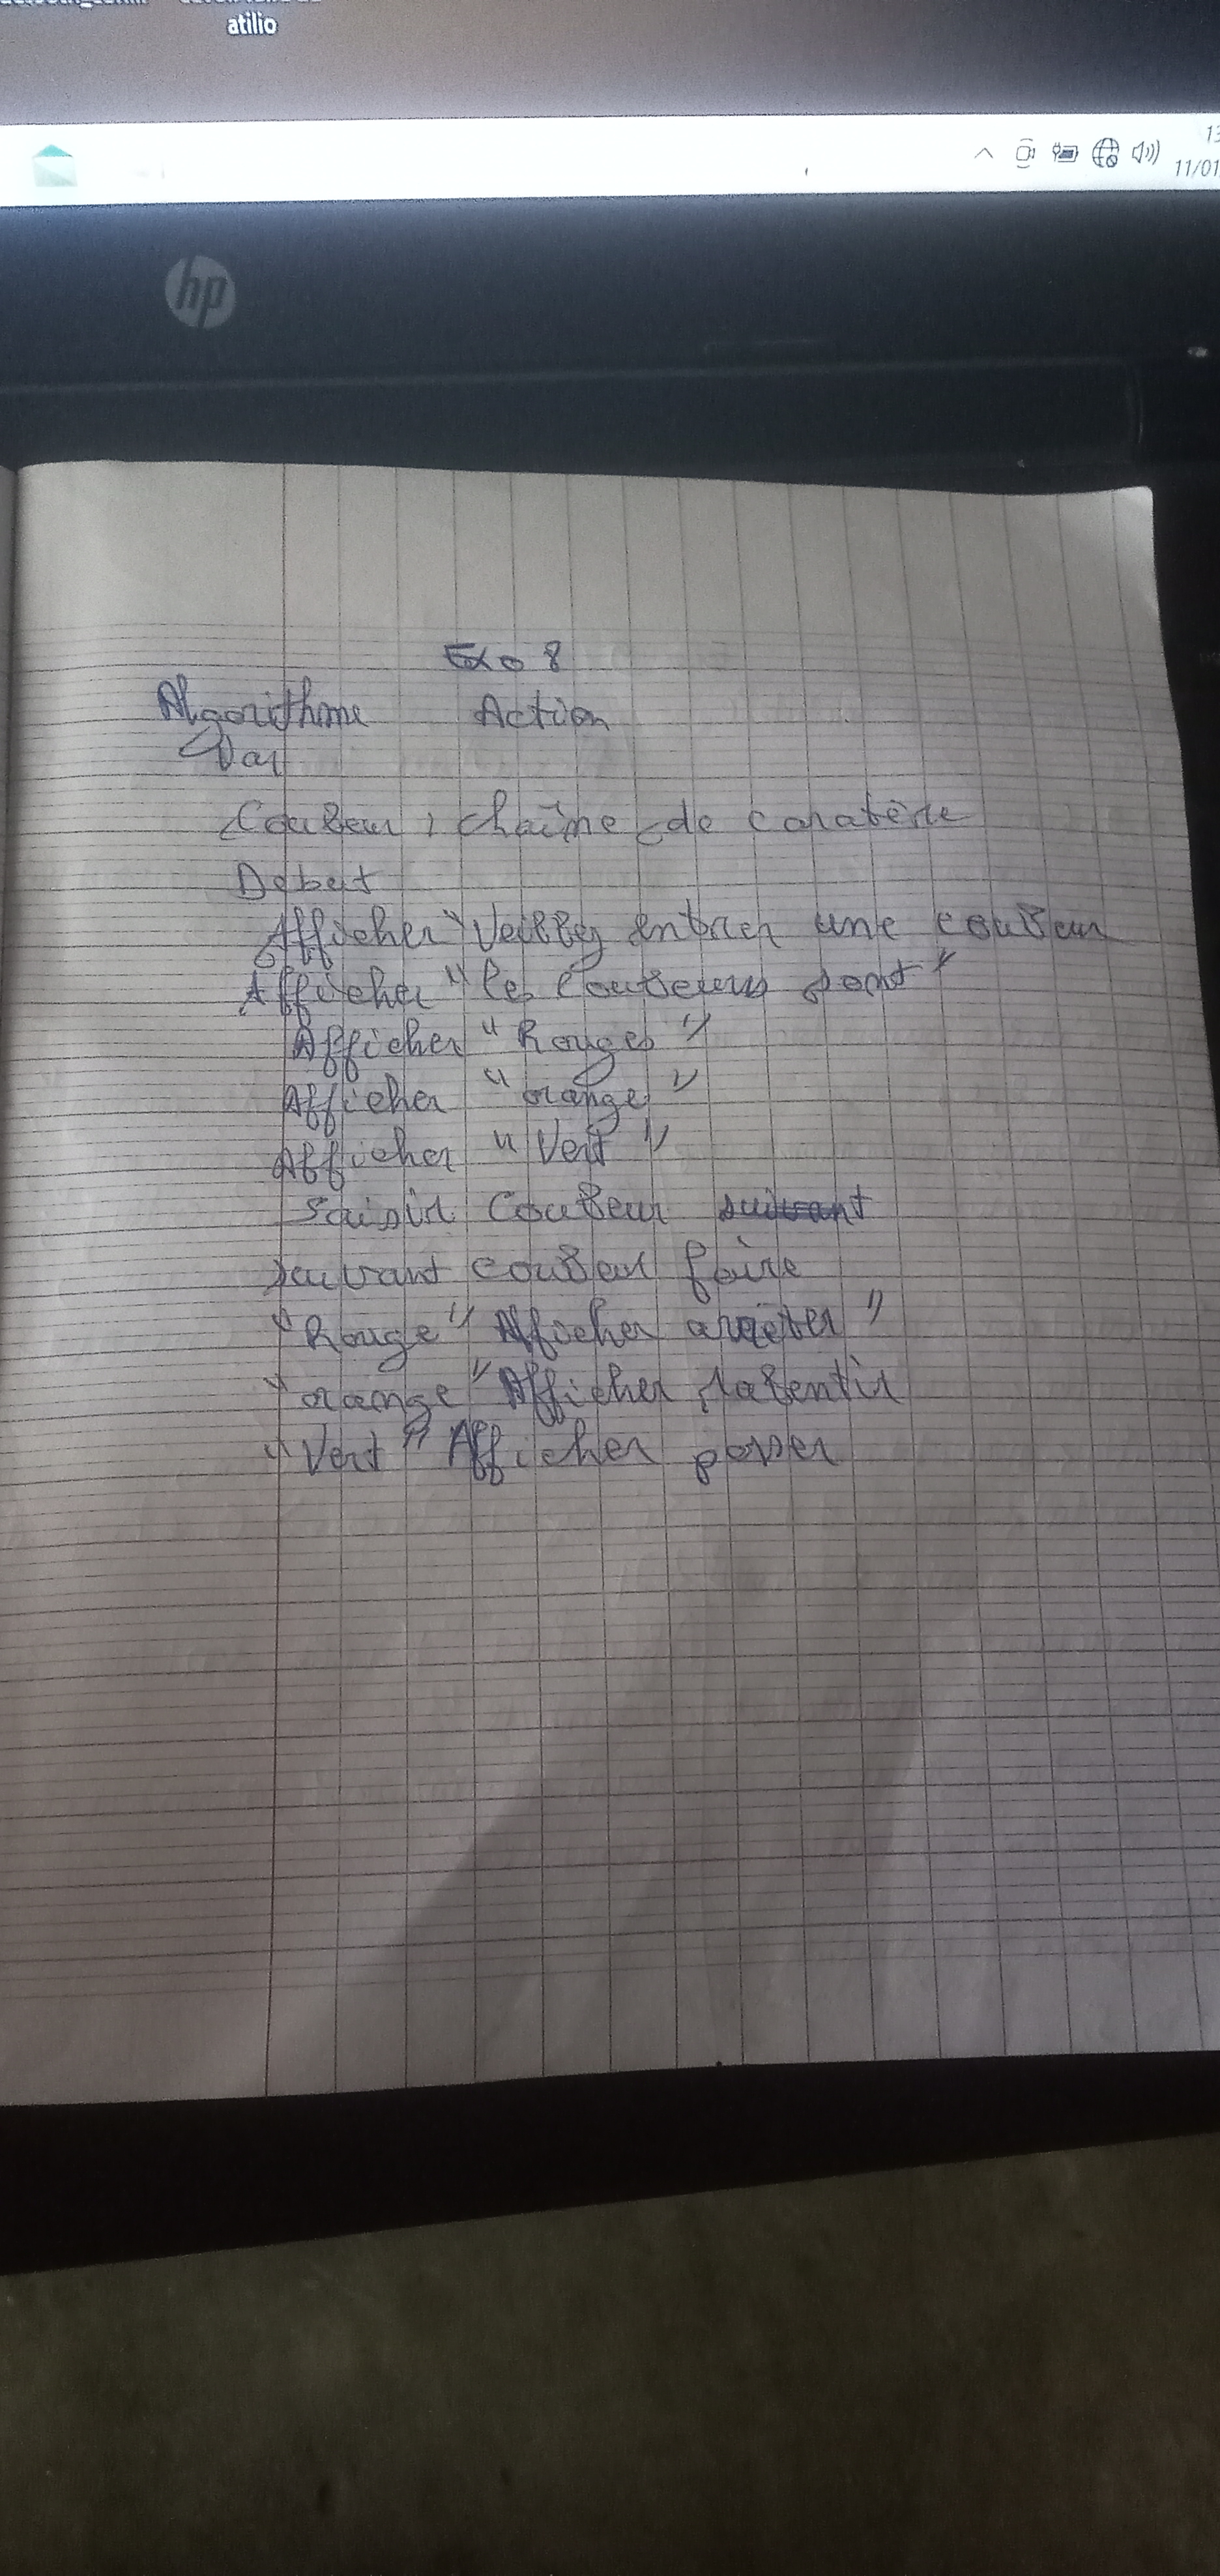 atilio
11/01
hp
Exo 8
Algorithme Action
Var
Couleur : chaîne de caratère
Debut
Afficher "Veillez entrer une couleur
Afficher "les couleurs sont"
Afficher "Rouges"
Afficher "orange"
Afficher "Vert"
Saisir Couleur suivant
suivant couleur faire
"Rouge" Afficher arrêter"
"orange" Afficher ralentir
"Vert" Afficher passer